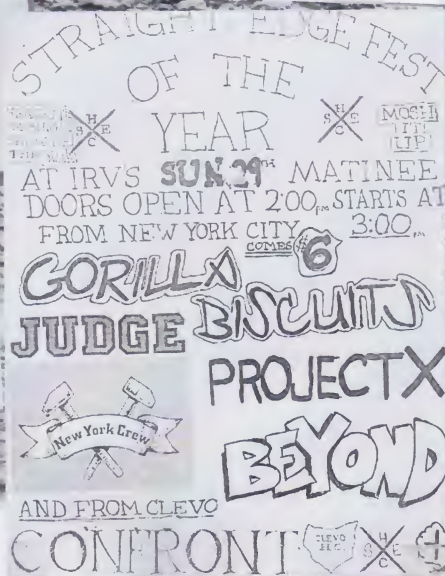 STRAIGHT EDGE FEST
OF THE
YEAR
H
S E
C
H
S E
C
MOSH
IT
UP
AT IRV'S SUN. 29TH MATINEE
DOORS OPEN AT 2:00 PM STARTS AT
3:00 PM
FROM NEW YORK CITY
COMES
$6
GORILLA
BISCUITS
JUDGE
PROJECT X
New York Crew
BEYOND
AND FROM CLEVO
CONFRONT
CLEVO
H.C.
H
S E
C